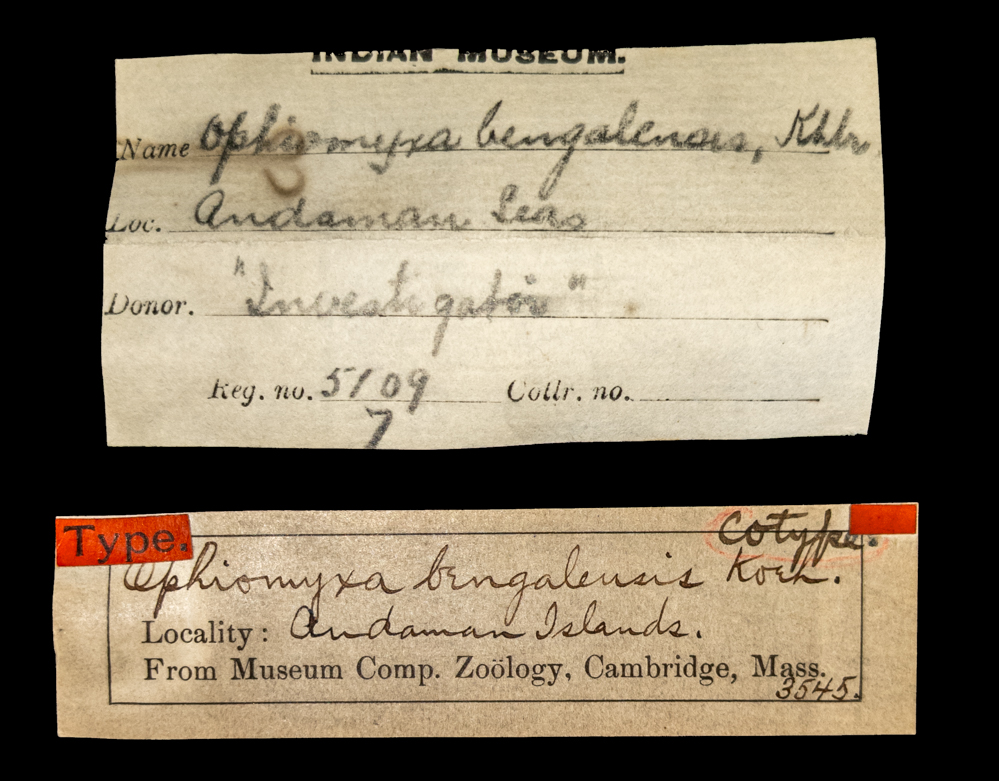 INDIAN MUSEUM.
Name Ophiomyxa bengalensis, Khlr
Loc. Andaman Seas
Donor. "Investigator"
Reg. no. 5109 Collr. no.
7
Type. cotype.
Ophiomyxa bengalensis Koeh.
Locality: Andaman Islands.
From Museum Comp. Zoölogy, Cambridge, Mass.
3545.